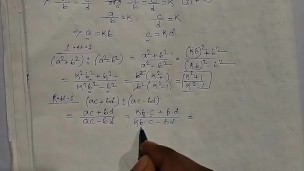 a/b = c/d = K
a/b = K   c/d = K
⇒ a = Kb   c = Kd
(a²+b²) : (a²-b²) = (a²+b²)/(a²-b²) = ((Kb)²+b²)/((Kb)²-b²)
= (K²b²+b²)/(K²b²-b²) = (b²(K²+1))/(b²(K²-1)) = (K²+1)/(K²-1)
R·H·S (ac+bd) : (ac-bd)
= (ac+bd)/(ac-bd) = (Kb·c+b·d)/(Kb·c-b·d) =